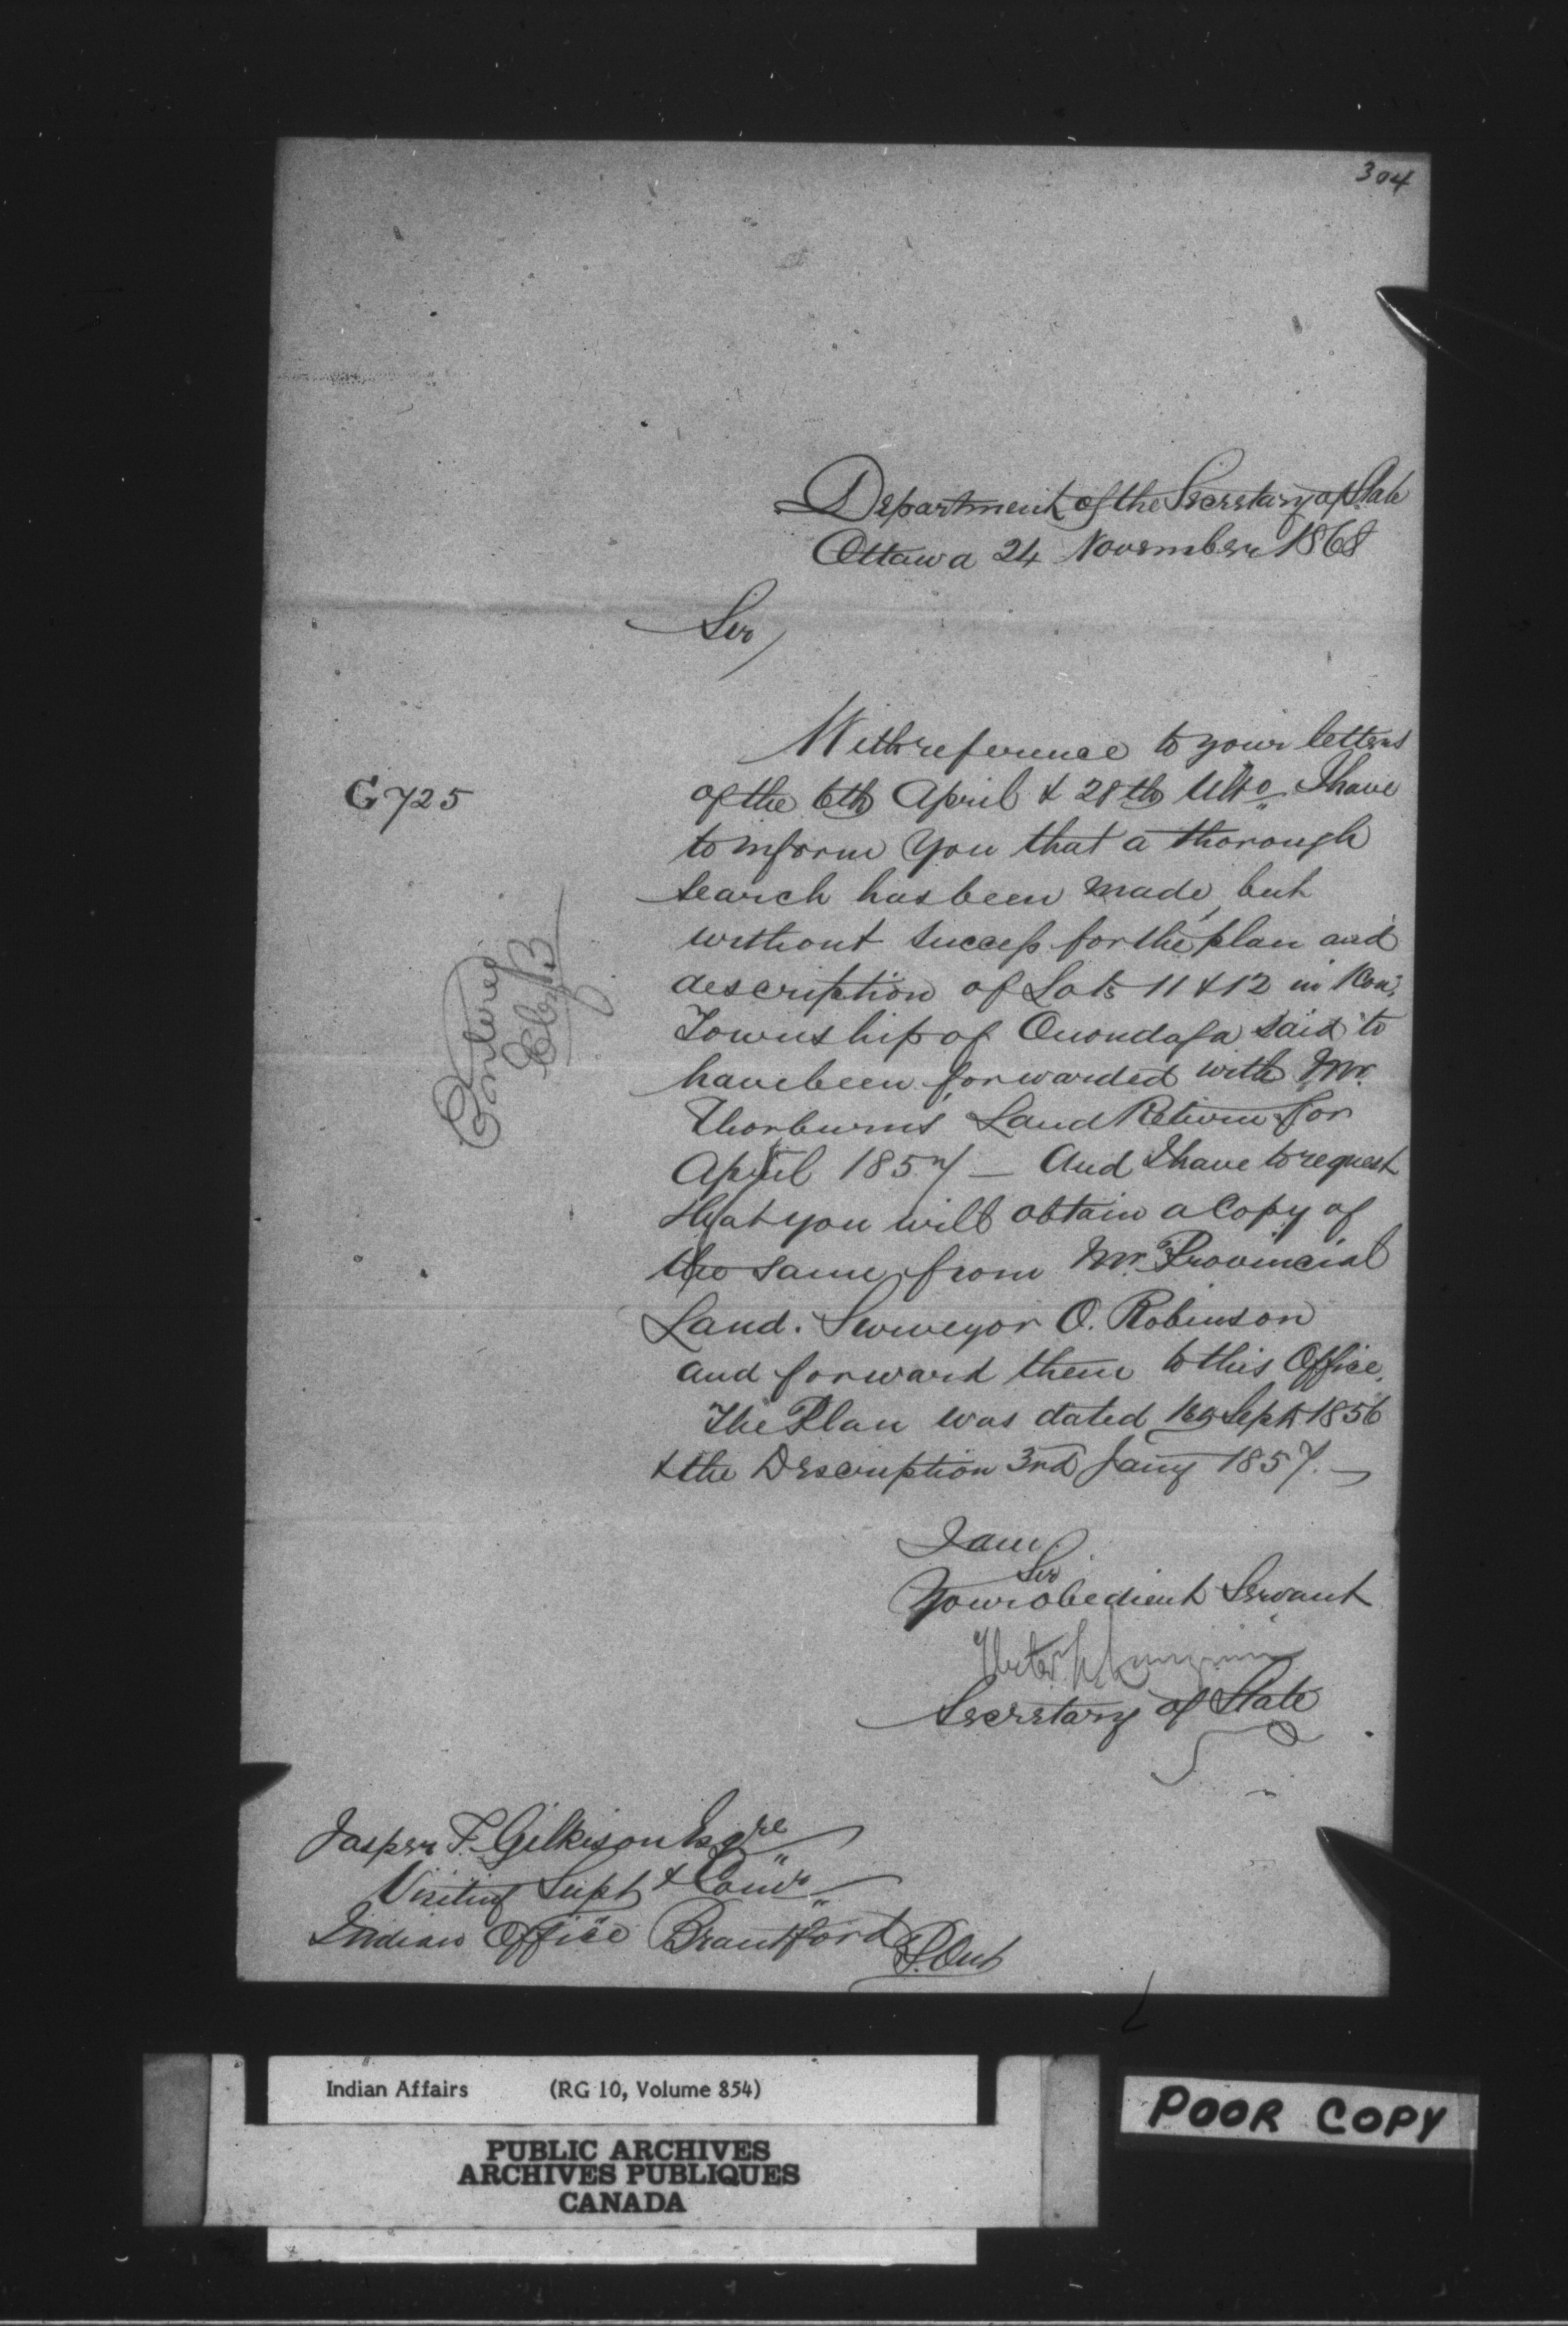 304
Department of the Secretary of State
Ottawa 24 November 1868
Sir,
With reference to your letters
G 725
of the 6th April & 28th Ulto I have
to inform You that a thorough
search has been made, but
without success for the plan and
description of Lots 11 & 12 in 1 Con.
Township of Onondaga said to
have been forwarded with Mr.
Thorburn's Land Return for
April 1857 — And I have to request
that you will obtain a Copy of
the same from Mr. Provincial
Land. Surveyor O. Robinson
and forward them to this Office.
The Plan was dated Sept 1856
& the Description 3rd Jany 1857. —
Entered
I am
Sir
Your obedient Servant
Hector L. Langevin
Secretary of State
Jasper T. Gilkison Esqre
Visiting Supt & Comr
Indian Office Brantford
P. Ont
Indian Affairs (RG 10, Volume 854)
PUBLIC ARCHIVES
ARCHIVES PUBLIQUES
CANADA
POOR COPY